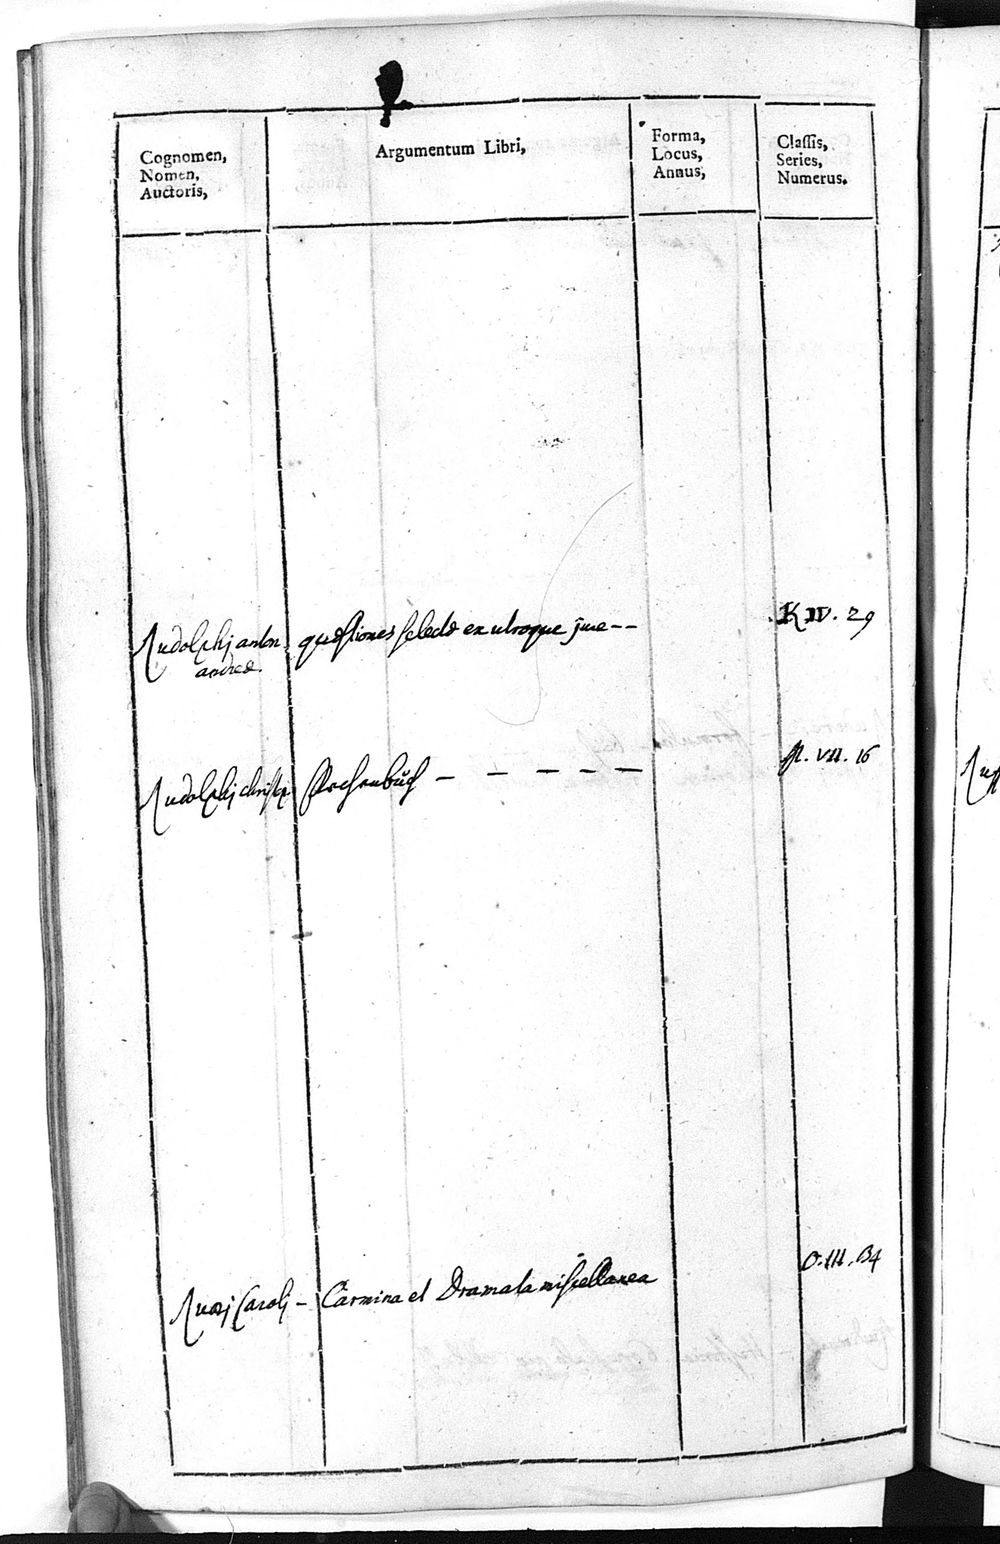 Cognomen,
Nomen,
Auctoris,
Argumentum Libri,
Forma,
Locus,
Annus,
Classis,
Series,
Numerus.
Rudolphj anton. quæstiones selectæ ex utroque jure -- K IV. 29
andreæ.
Rudolphj christ. Rechenbuch - - - - - VII. 16
Caroli - Carmina et Dramata miscellanea O. III. 34